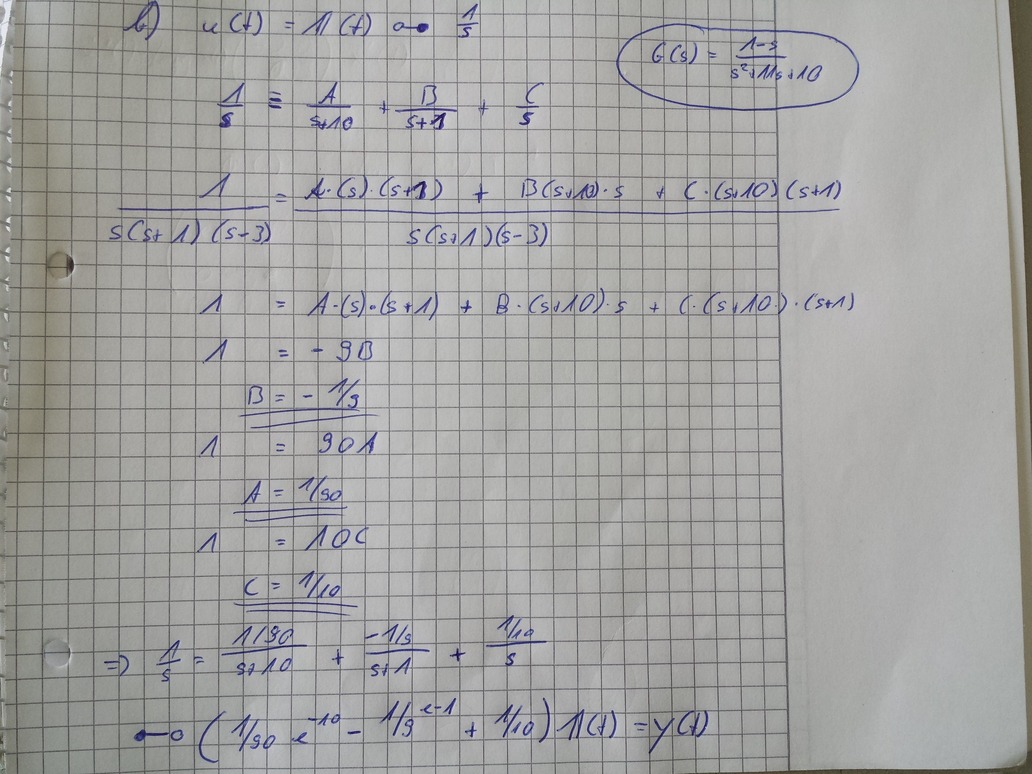 b) u(t) = 1(t) ○─● 1/s
G(s) = (1-s)/(s²+11s+10)
1/s ≡ A/(s+10) + B/(s+1) + C/s
1/(s(s+1)(s-3)) = (A·(s)·(s+1) + B(s+10)·s + C·(s+10)(s+1))/(s(s+1)(s-3))
1 = A·(s)·(s+1) + B·(s+10)·s + C·(s+10)·(s+1)
1 = -9B
B = -1/9
1 = 90A
A = 1/90
1 = 10C
C = 1/10
=> 1/s = (1/90)/(s+10) + (-1/9)/(s+1) + (1/10)/s
●─○ (1/90 e^-10 - 1/9 e^-1 + 1/10) 1(t) = y(t)